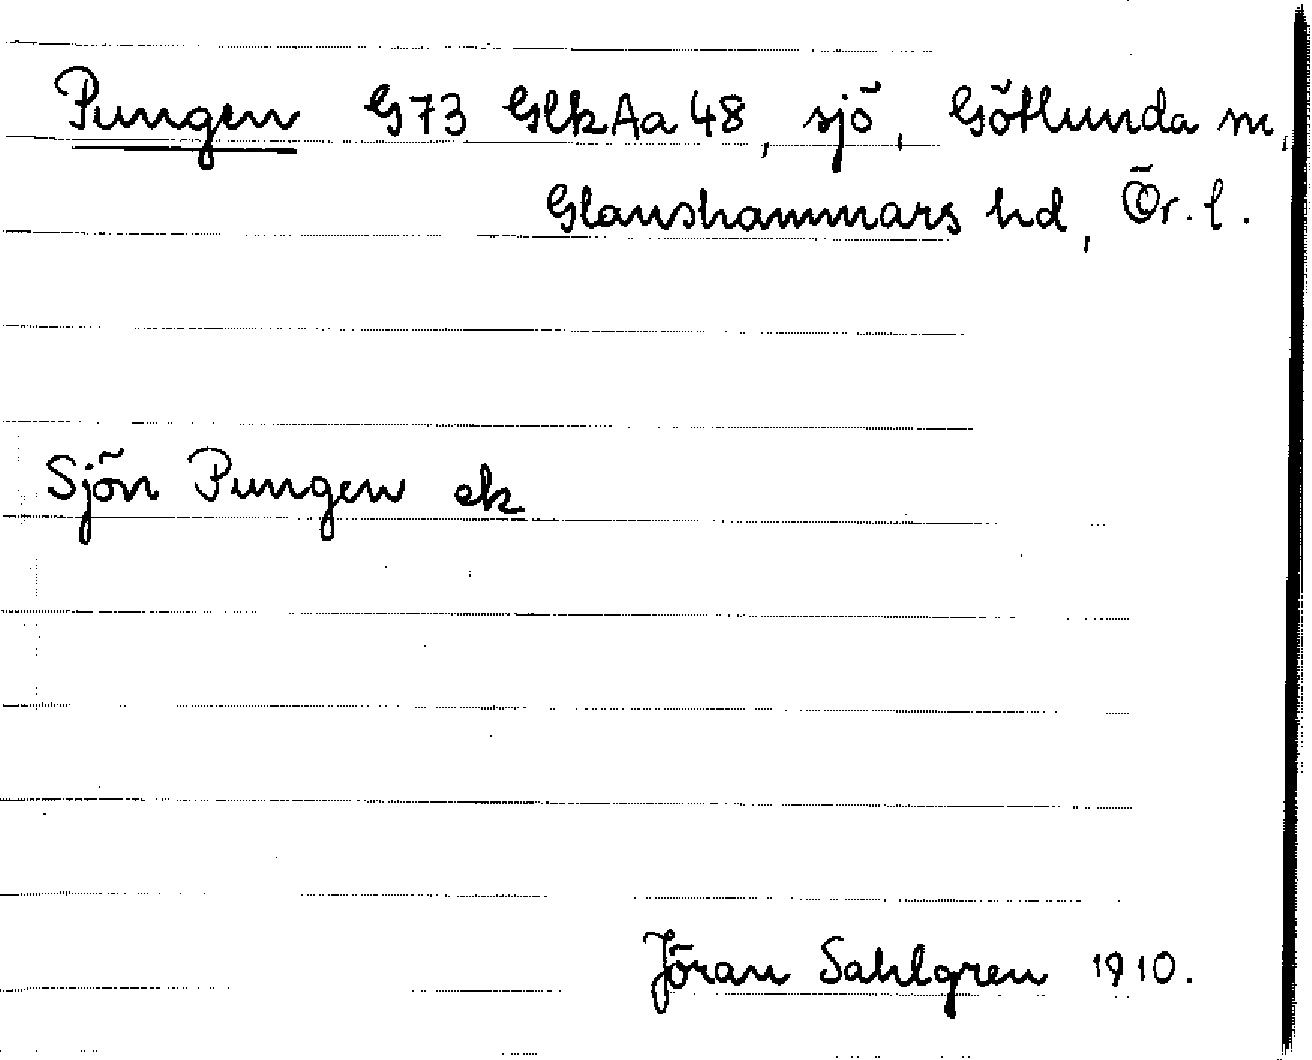 Pungen G73 GlkAa48, sjö, Götlunda sn,
Glanshammars hd, Ör. l.
Sjön Pungen ek
Jöran Sahlgren 1910.